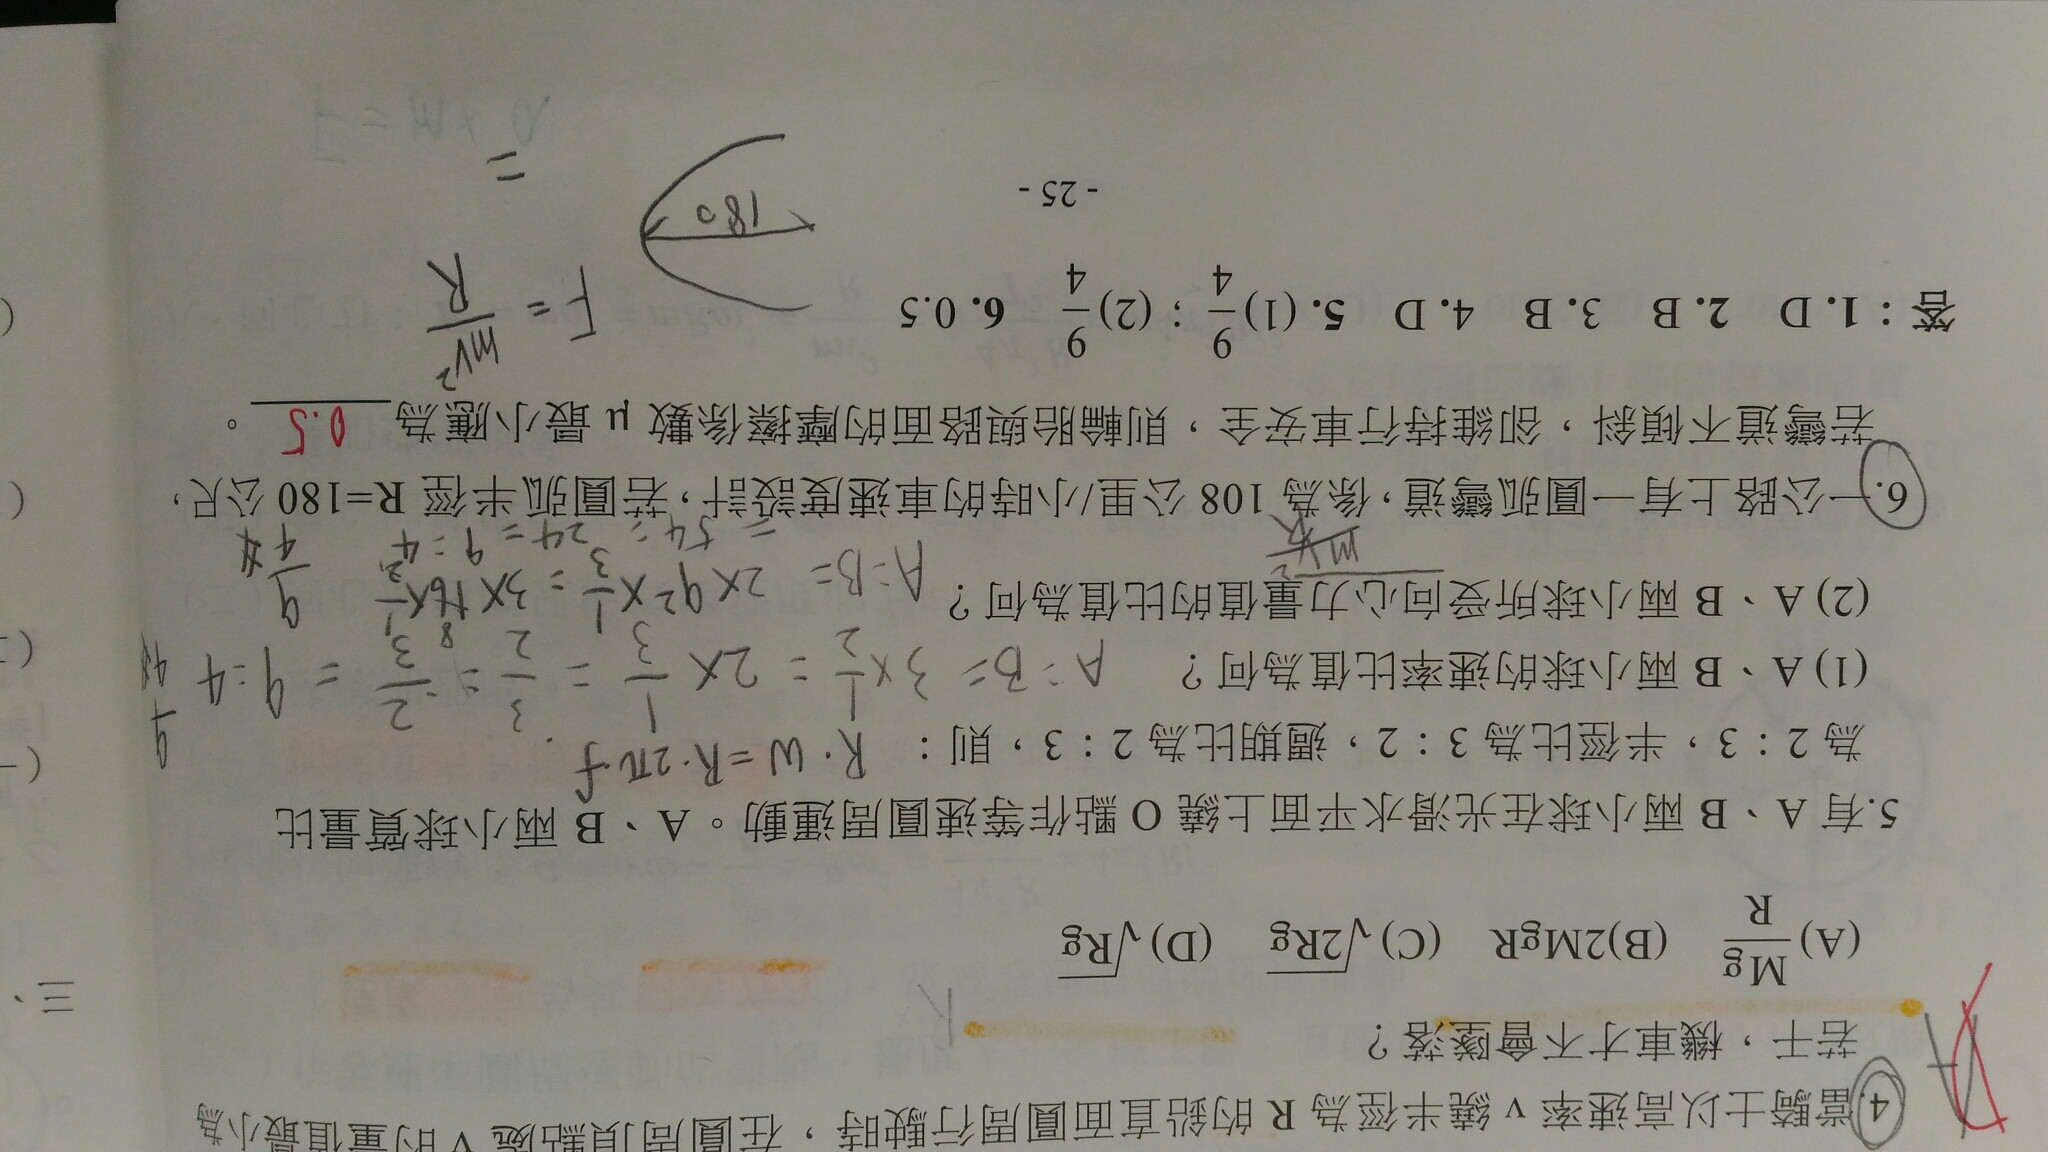 4.當騎士以高速率 v 繞半徑為 R 的鉛直面圓周行駛時，在圓周頂點處 V 的量值最小為
若干，機車才不會墜落？
(A) Mg/R (B)2MgR (C)√2Rg (D)√Rg
5.有 A、B 兩小球在光滑水平面上繞 O 點作等速圓周運動。A、B 兩小球質量比
為 2：3，半徑比為 3：2，週期比為 2：3，則：
R·W=R·2π·f
(1) A、B 兩小球的速率比值為何？
A:B= 3×1/2 = 2×1/3 = 3/2 = 2/3 = 9:4
9/4
(2) A、B 兩小球所受向心力量值的比值為何？
A:B= 2×9²×1/3 = 3×16×1/2
= 54 : 24 = 9 : 4
9/4
mv²/R
6.一公路上有一圓弧彎道，係為 108 公里/小時的車速度設計，若圓弧半徑 R=180 公尺，
若彎道不傾斜，卻維持行車安全，則輪胎與路面的摩擦係數 μ 最小應為 0.5 。
答：1. D 2. B 3. B 4. D 5. (1) 9/4；(2) 9/4 6. 0.5
F= mv²/R
180
=
- 25 -
三、